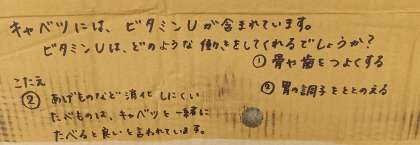 キャベツには、ビタミンUが含まれています。
ビタミンUは、どのような働きをしてくれるでしょうか?
① 骨や歯をつよくする
② 胃の調子をととのえる
こたえ
② あげものなど消化しにくい
たべものは、キャベツと一緒に
たべると良いと言われています。